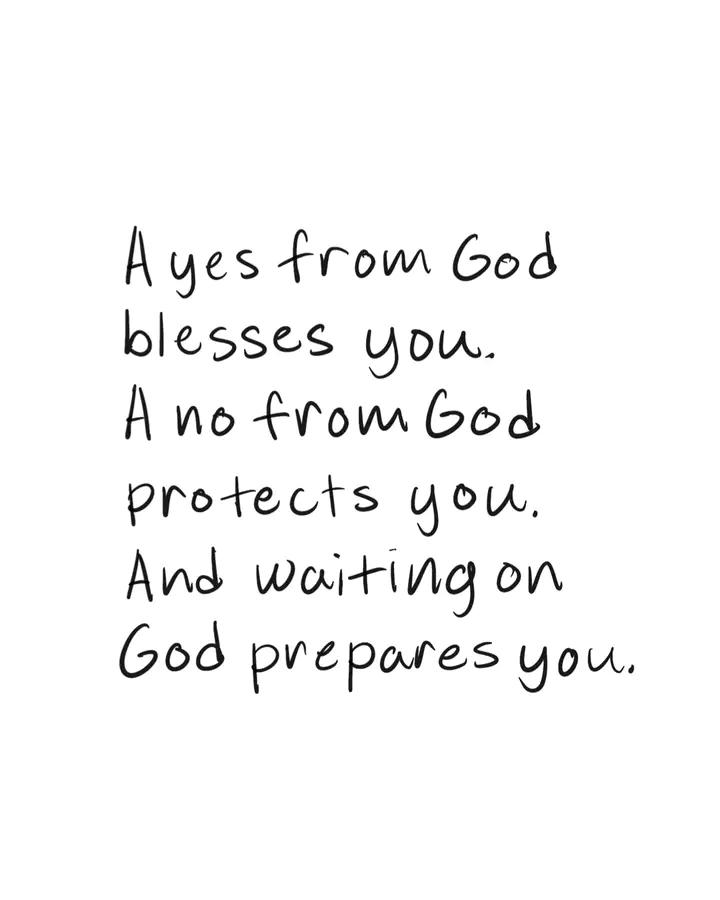 A yes from God
blesses you.
A no from God
protects you.
And waiting on
God prepares you.